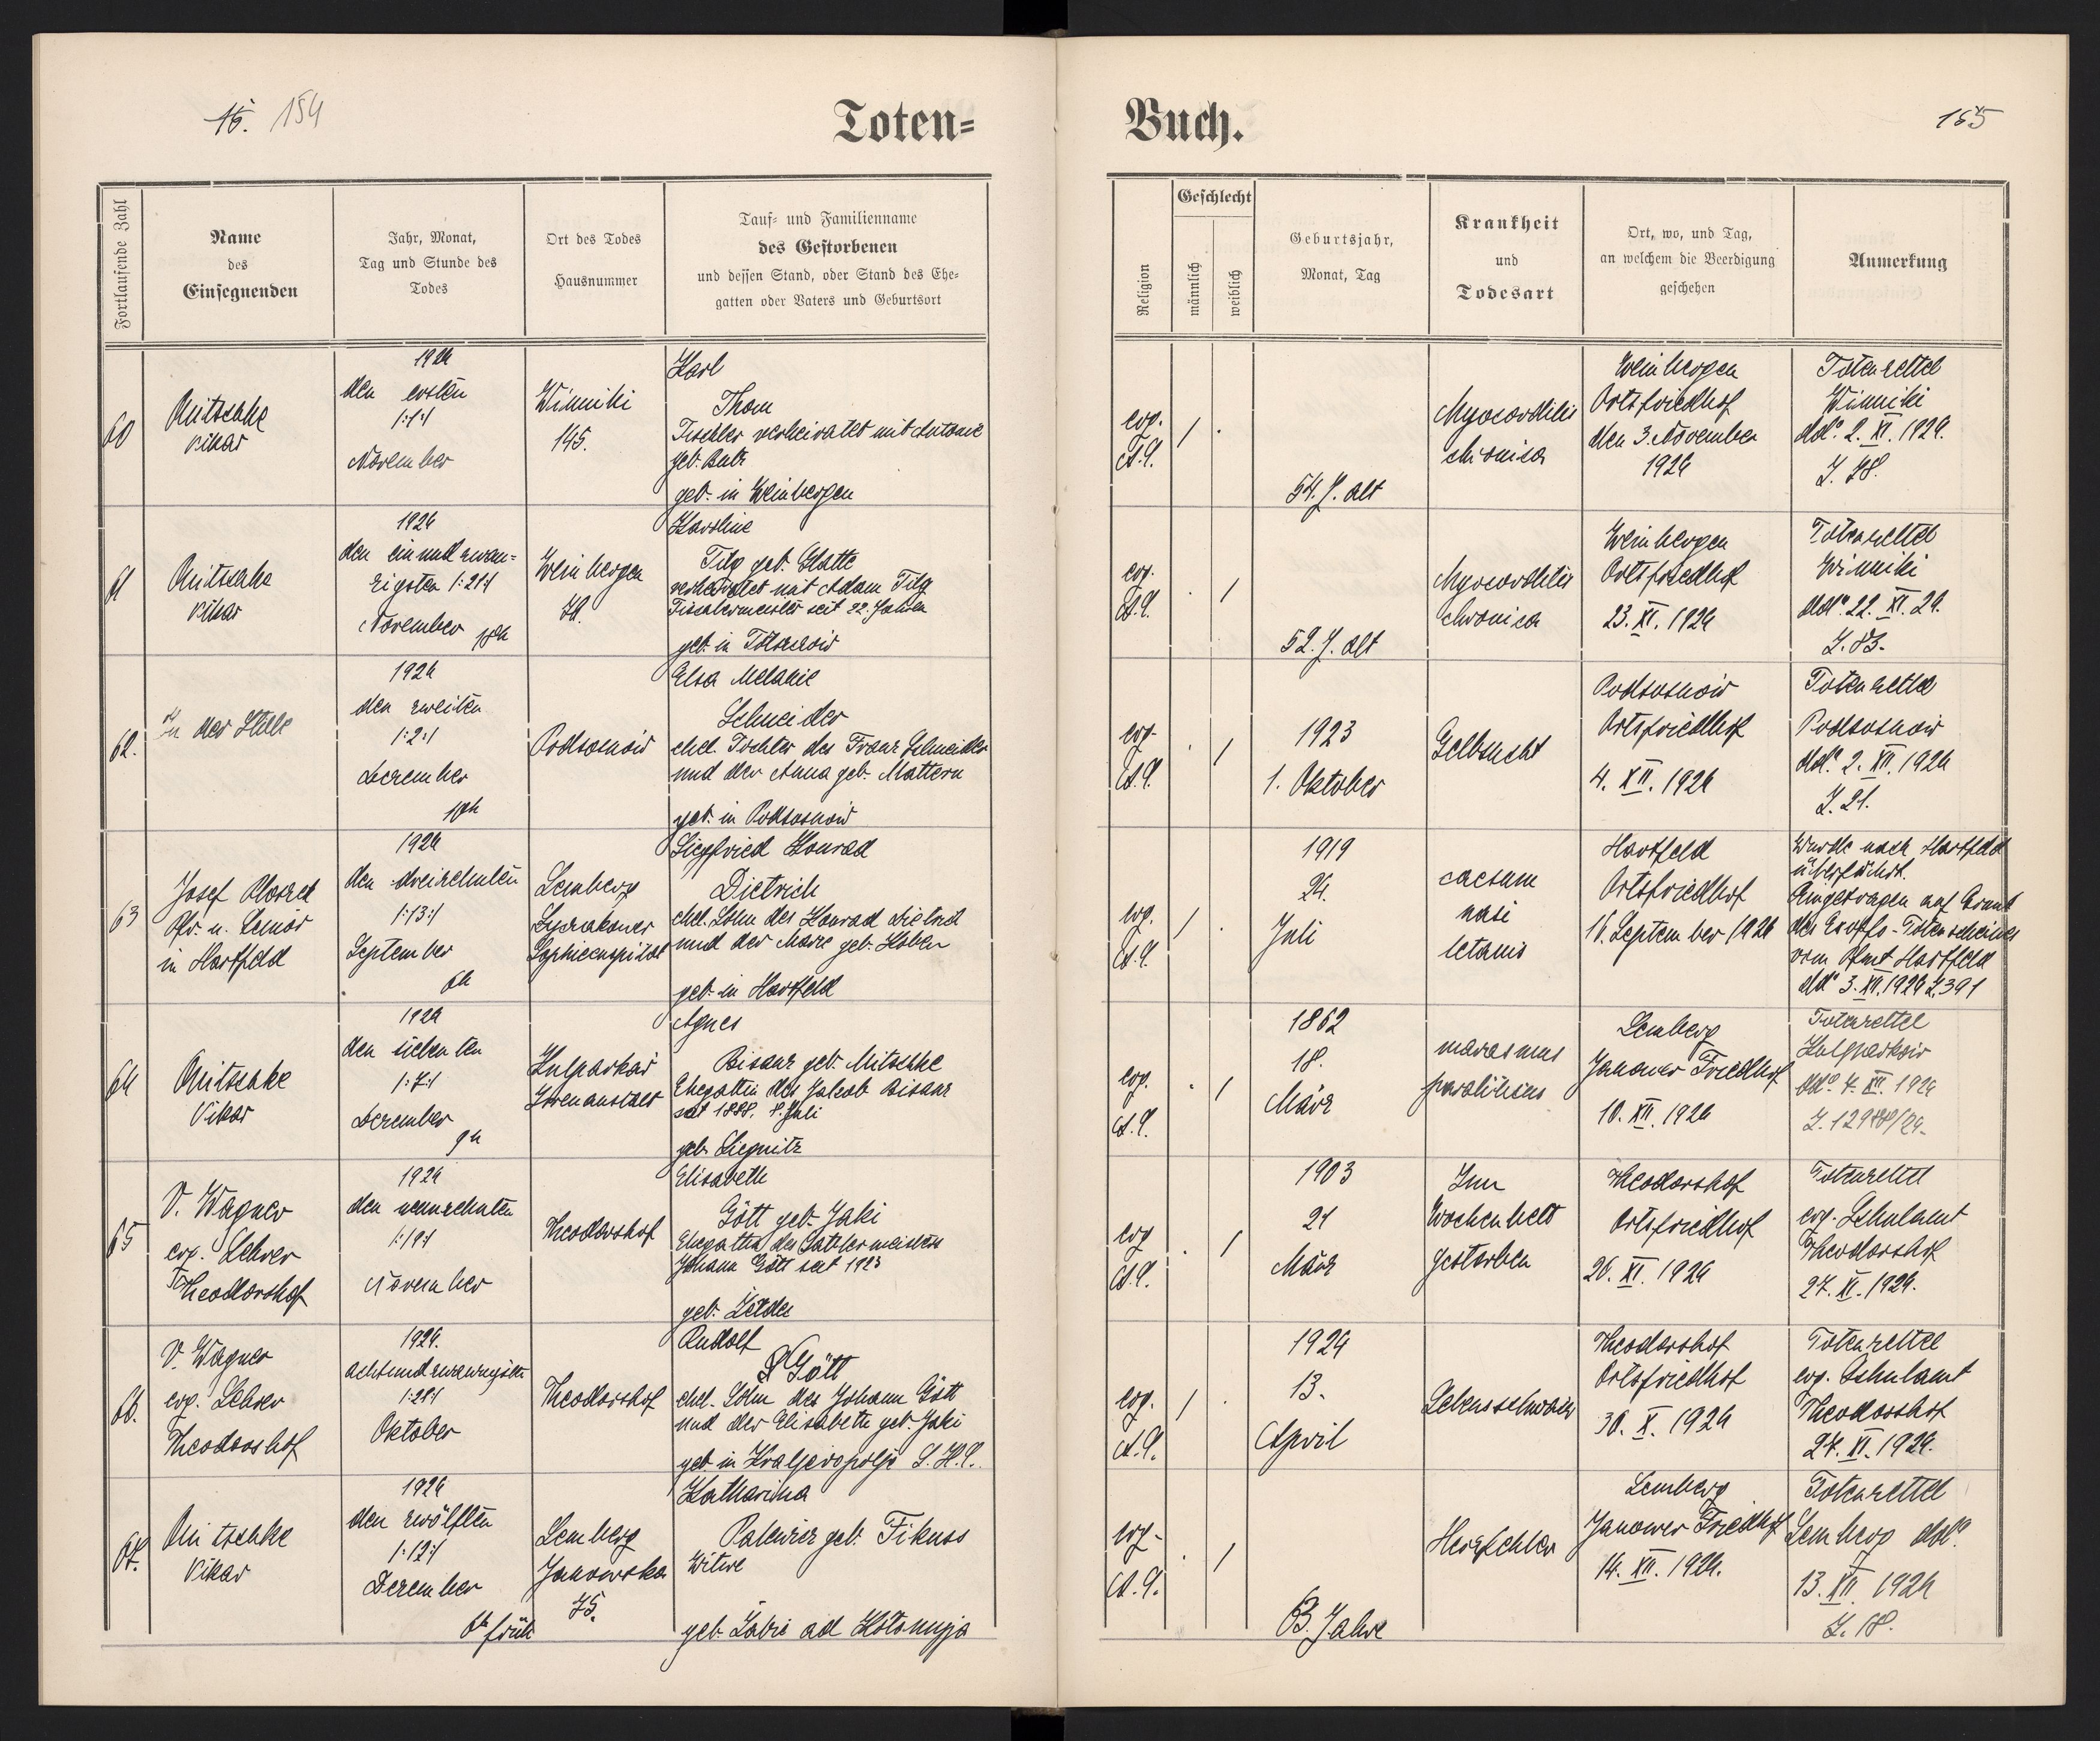 15. 154
Toten=
Buch.
155
Fortlaufende Zahl
Name
des
Einsegnenden
Jahr, Monat,
Tag und Stunde des
Todes
Ort des Todes
Hausnummer
Tauf= und Familienname
des Gestorbenen
und dessen Stand, oder Stand des Ehe=
gatten oder Vaters und Geburtsort
Religion
Geschlecht
männlich
weiblich
Geburtsjahr,
Monat, Tag
Krankheit
und
Todesart
Ort, wo, und Tag,
an welchem die Beerdigung
geschehen
Anmerkung
60
Vikar
1924
den ersten
1:1:1
November
Winniki
145.
Karl
Thom
Tischler verheiratet mit Antonie
geb.
geb. in Weinbergen
ev.
A.C.
/
.
54. J. alt
Myocarditis
chronica
Weinbergen
Ortsfriedhof
den 3. November
1924
Totenzettel
Winniki
ddo. 2. XI. 1924.
Z. 78.
61
Vikar
1924
den einundzwan=
zigsten 1:21:1
November
Weinbergen
Karoline
Tilg geb. Glatte
verheiratet mit Adam Tilg
Tischlermeister seit 22 Jahren
geb. in
ev.
A.C.
.
/
52. J. alt
Myocarditis
chronica
Weinbergen
Ortsfriedhof
23. XI. 1924
Totenzettel
Winniki
ddo. 22. XI. 24.
Z. 83.
62.
In der Stille
1924
den zweiten
1:2:1
Dezember
10h
Podsosnow
Elsa Melanie
Schneider
ehel. Tochter des Franz Schneider
und der Anna geb. Mattern
geb. in Podsosnow
ev.
A.C.
.
/
1923
1. Oktober
Gelbsucht
Podsosnow
Ortsfriedhof
4. XII. 1924
Totenzettel
Podsosnow
ddo. 2. XII. 1924
Z. 21.
63
Josef
Pfr. u. Senior
in Hartfeld
1924
den dreizehnten
1:13:1
September
6h
Lemberg
Lyczakower
Sophienspital
Siegfried Konrad
Dietrich
ehel. Sohn des Konrad Dietrich
und der Marie geb. Kober
geb. in Hartfeld
ev.
A.C.
/
.
1919
24.
Juli
nasi
tetanus
Hartfeld
Ortsfriedhof
16. September 1924
Wurde nach Hartfeld
überführt.
Eingetragen auf Grund
des Exoffo-Totenscheines
vom Pfamt Hartfeld
ddo. 3. XII. 1924 Z. 391
64
Vikar
1924
den siebenten
1:7:1
Dezember
9h
Kulparkow
Irrenanstalt
Agnes
Bisanz geb. Mitschke
Ehegattin des Jakob Bisanz
seit 1888. 8. Juli
geb. Liegnitz
ev.
A.C.
.
/
1862
18.
März
marasmus
paraliticus
Lemberg
Janower Friedhof
10. XII. 1924
Totenzettel
Kulparkow
65
V. Wagner
ev. Lehrer
Theodorshof
1924
den neunzehnten
1:19:1
November
Theodorshof
Elisabeth
Gött geb. Jaki
Ehegattin des Sattlermeisters
Johann Gött seit 1923
ev.
A.C.
.
/
1903
21
März
Im
Wochenbett
gestorben
Theodorshof
Ortsfriedhof
20. XI. 1924
Totenzettel
ev. Schulamt
Theodorshof
27. XI. 1924.
66.
V. Wagner
ev. Lehrer
Theodorshof
1924.
achtundzwanzigsten
1:28:1
Oktober
Theodorshof
Rudolf
Gött
ehel. Sohn des Johann Gött
und der Elisabeth geb. Jaki
geb. in Kraljevopolje S.H.S.
ev.
A.C.
/
.
1924
13.
April
Lebensschwach
Theodorshof
Ortsfriedhof
30. X. 1924
Totenzettel
ev. Schulamt
Theodorshof
27. XI. 1924.
67.
Vikar
1924
den zwölften
1:12:1
Dezember
6h früh
Lemberg
Janowska
75.
Katharina
geb. Fikuss
Witwe
ev.
A.C.
.
/
63. Jahre
Herzfehler
Lemberg
Janower Friedhof
14. XII. 1924.
Totenzettel
Lemberg ddo.
13. XII. 1924
Z. 18.